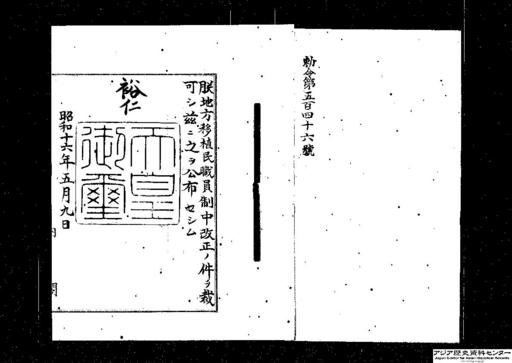 勅令第五百四十六號
朕地方移植民職員制中改正ノ件ヲ裁
可シ茲ニ之ヲ公布セシム
裕仁
天皇
御璽
昭和十六年五月九日
内
閣
アジア歴史資料センター
Japan Center for Asian Historical Records